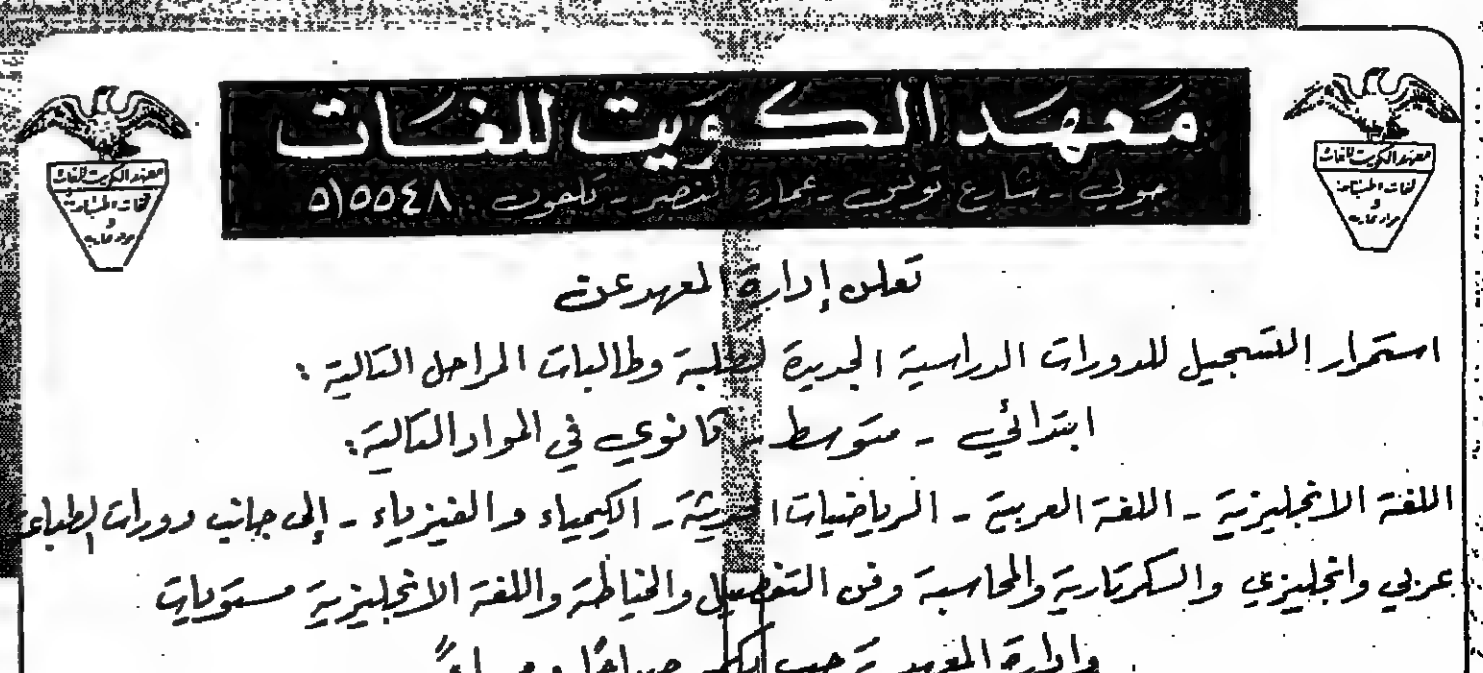 معهد الكويت للغات
حولي - شارع تونس - عمارة النصر - تلفون: ٥١٥٥٤٨
معهد الكويت للغات
لغات اختبارات
و
مواد تجارية
معهد الكويت للغات
لغات اختبارات
و
مواد تجارية
تعلن إدارة المعهد عن
استمرار التسجيل للدورات الدراسية الجديدة لطلبة وطالبات المراحل التالية :
ابتدائي - متوسط - ثانوي في المواد التالية:
اللغة الانجليزية - اللغة العربية - الرياضيات الحديثة - الكيمياء والفيزياء - إلى جانب دورات الطباعة
عربي وانجليزي والسكرتارية والمحاسبة وفن التفصيل والخياطة واللغة الانجليزية مستويات
وإدارة المعهد ترحب بكم صباحاً ومساءً